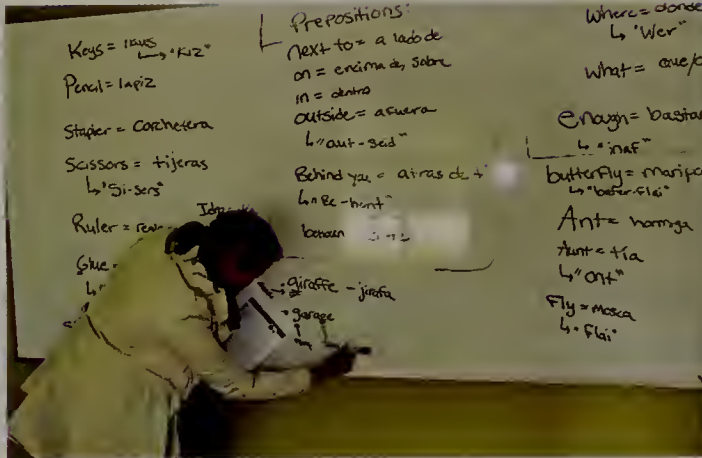 Keys =
↳ "Kiz"
Pencil = lapiz
Stapler = Corchetera
Scissors = tijeras
↳ "Si-sers"
Ruler =
Glue
Prepositions:
next to = a lado de
on = encima de, sobre
in = dentro
outside = afuera
↳ "aut-seid"
Behind you = atras de
↳ "Be-
giraffe - jirafa
garage
Where = donde
↳ "Wer"
What = que/
enough = basta
↳ "inaf"
butterfly = maripo
↳ "boter-flai"
Ant = hormiga
Aunt = tia
↳ "ant"
Fly = mosca
↳ "flai"